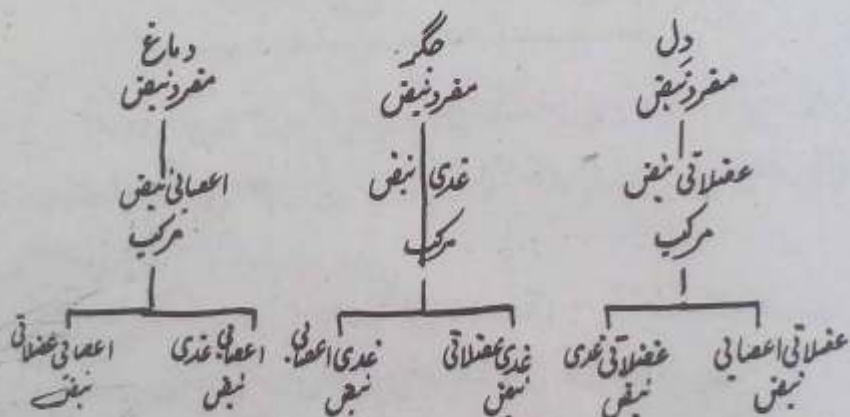 دِل
مفرد نبض
عضلاتی نبض
مرکب
عضلاتی اعصابی
نبض
عضلاتی غدی
نبض
جگر
مفرد نبض
غدی نبض
مرکب
غدی عضلاتی
نبض
غدی اعصابی
نبض
دماغ
مفرد نبض
اعصابی نبض
مرکب
اعصابی غدی
نبض
اعصابی عضلاتی
نبض